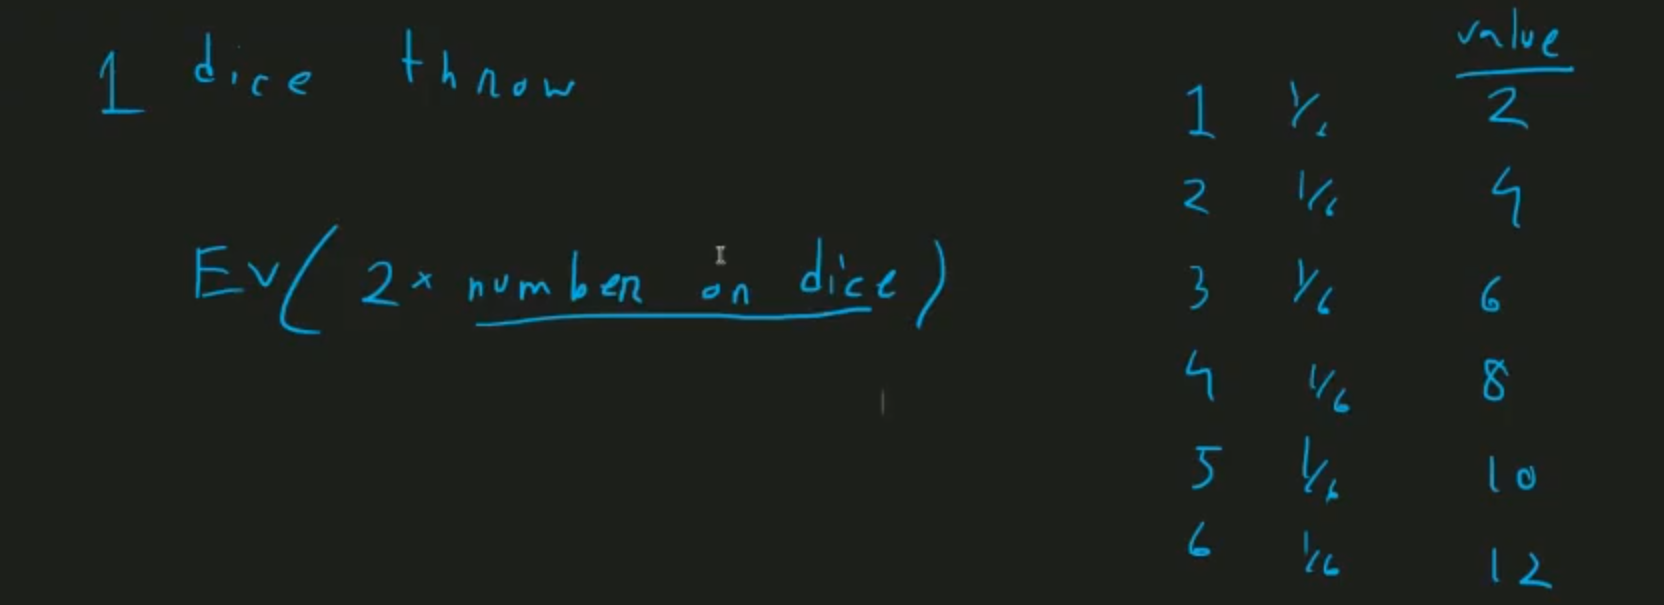 1 dice throw
Ev( 2 × number on dice )
value
1 1/6 2
2 1/6 4
3 1/6 6
4 1/6 8
5 1/6 10
6 1/6 12